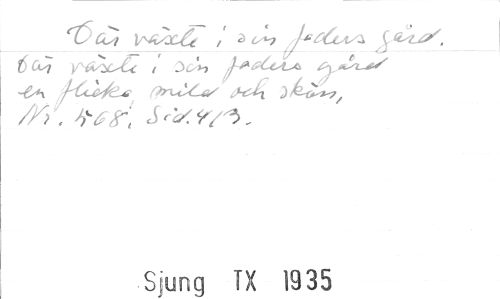 Där växte i sin faders gård.
Där växte i sin faders gård
en flicka, mild och skön,
Nr. 568. Sid. 413.
Sjung TX 1935